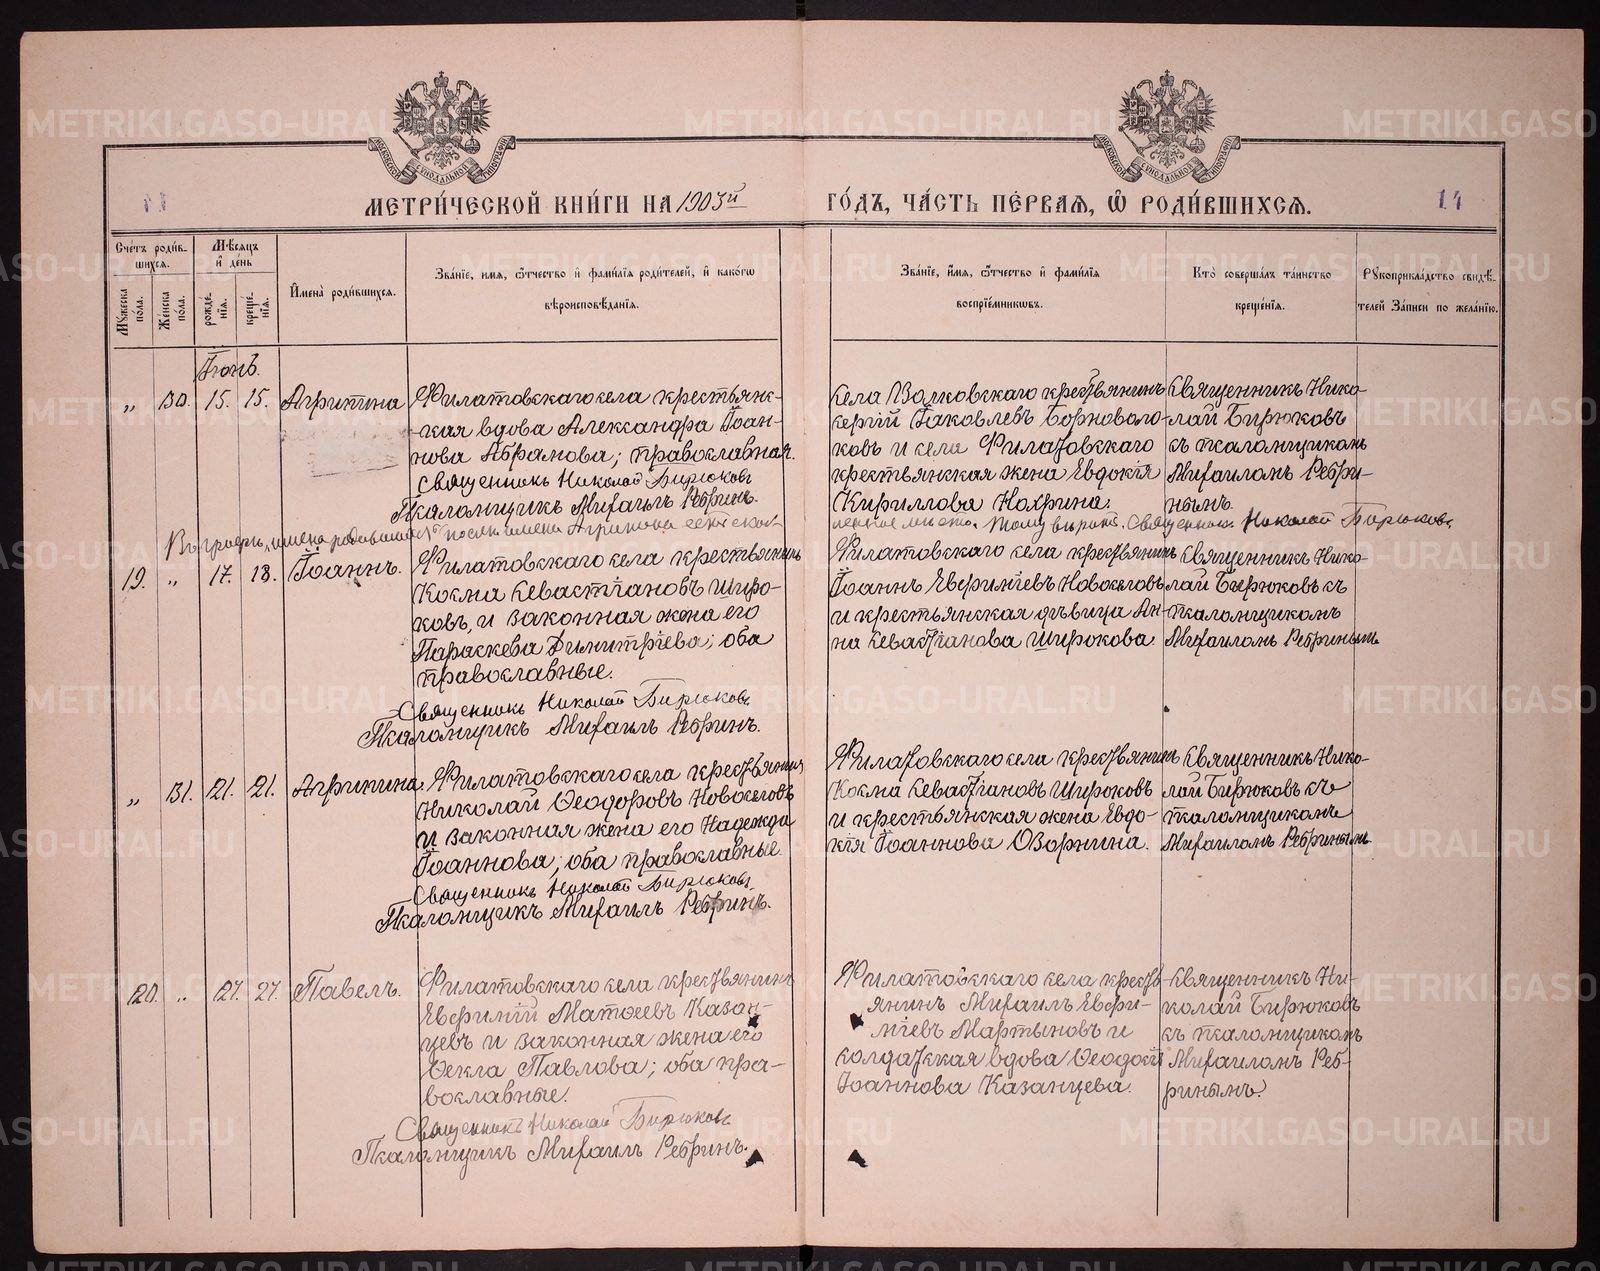 МЕТРИ́ЧЕСКОЙ КНИ́ГИ НА 1903й ГО́ДЪ, ЧА́СТЬ ПЕ́РВАЯ, Ѡ РОДИ́ВШИХСЯ.
11
14
Сче́тъ роди́в-
шихся.
Мꙋ́жеска по́ла.
Же́нска по́ла.
Мѣ́сяцъ и де́нь
рожде́нія.
креще́нія.
Имена̀ роди́вшихся.
Зва́ніе, имя, ѻ́тчество и фами́лія роди́телей, и како́гѡ
вѣроисповѣ́данія.
Зва́ніе, и́мя, ѻ́тчество и фами́лія
воспріе́мниковъ.
Кто̀ соверша́лъ та́инство
креще́нія.
Рꙋкоприкла́дство свидѣ́-
телей За́писи по жела́нію.
Іюнь.
„ 30. 15. 15. Агрипина
Филатовскаго села крестьянс-
кая вдова Александра Іоан-
нова Абрамова; православная.
Священникъ Николай Бирюковъ
Псаломщикъ Михаилъ Ребринъ.
села Волковскаго крестьянинъ
Іаковлевъ
ковъ и села Филатовскаго
крестьянская жена Евдокія
Кириллова Нохрина.
Священникъ Нико-
лай Бирюковъ
съ псаломщикомъ
Михаиломъ Ребри-
нымъ.
Въ графѣ, имена родившихся послѣ имени Агрипина есть скоб-
ленное мѣсто. Тому вѣрить. Священникъ Николай Бирюковъ
19. „ 17. 18. Іоаннъ.
Филатовскаго села крестьянинъ
Косма Севастіановъ Широ-
ковъ, и законная жена его
Параскева Димитріева; оба
православные.
Священникъ Николай Бирюковъ
Псаломщикъ Михаилъ Ребринъ.
Филатовскаго села крестьянинъ
Іоаннъ Евфиміевъ Новоселовъ
и крестьянская дѣвица Ан-
на Севастіанова Широкова.
Священникъ Нико-
лай Бирюковъ съ
псаломщикомъ
Михаиломъ Ребринымъ
„ 31. 21. 21. Агрипина.
Филатовскаго села крестьянинъ
Николай Ѳеодоровъ Новоселовъ
и законная жена его Надежда
Іоаннова; оба православные.
Священникъ Николай Бирюковъ
Псаломщикъ Михаилъ Ребринъ.
Филатовскаго села крестьянинъ
Косма Севастіановъ Широковъ
и крестьянская жена Евдо-
кія Іоаннова Озорнина.
Священникъ Нико-
лай Бирюковъ съ
псаломщикомъ
Михаиломъ Ребринымъ
20. „ 27. 27. Павелъ.
Филатовскаго села крестьянинъ
Евфимій Матѳеевъ Казан-
цевъ и законная жена его
Ѳекла Павлова; оба пра-
вославные.
Священникъ Николай Бирюковъ
Псаломщикъ Михаилъ Ребринъ.
Филатовскаго села кресть-
янинъ Михаилъ Евфи-
міевъ Мартыновъ и
солдатская вдова Ѳеодосія
Іоаннова Казанцева.
Священникъ Ни-
колай Бирюковъ
съ псаломщикомъ
Михаиломъ Реб-
ринымъ.
METRIKI.GASO-URAL.RU